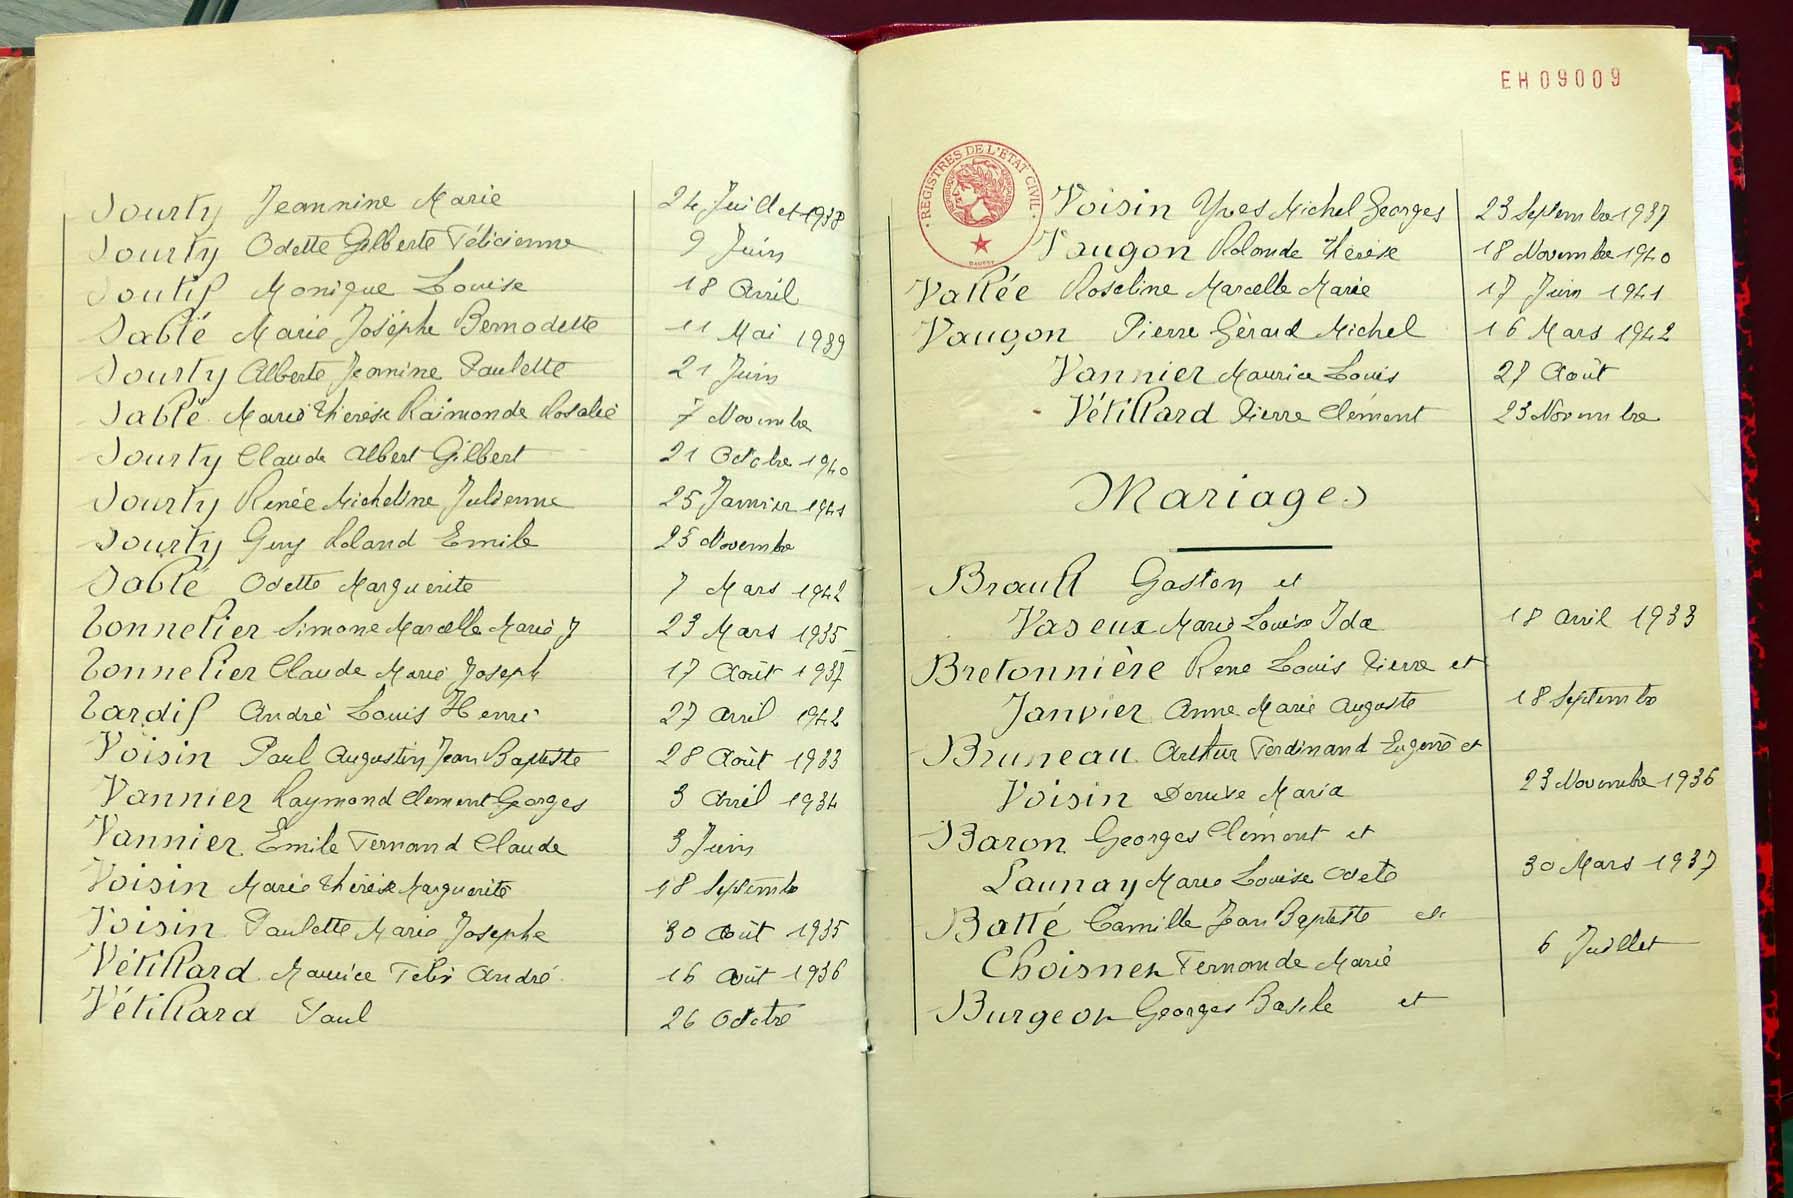 Sourty Jeannine Marie 24 Juillet 1938
Sourty Odette Gilberte Félicienne 9 Juin
Soutif Monique Louise 18 Avril
Sablé Marie Josèphe Bernadette 11 Mai 1939
Sourty Alberte Jeannine Paulette 21 Juin
Sablé Marie Thérèse Raimonde Rosalie 7 Novembre
Sourty Claude Albert Gilbert 21 Octobre 1940
Sourty Renée Micheline Julienne 25 Janvier 1941
Sourty Guy Roland Emile 25 Novembre
Sablé Odette Marguerite 7 Mars 1942
Tonnelier Simone Marcelle Marie J 23 Mars 1935
Tonnelier Claude Marie Joseph 17 Août 1937
Tardif André Louis Henri 27 Avril 1942
Voisin Paul Augustin Jean Baptiste 28 Août 1933
Vannier Raymond Clément Georges 3 Avril 1934
Vannier Emile Fernand Claude 3 Juin
Voisin Marie Thérèse Marguerite 18 Septembre
Voisin Paulette Marie Josèphe 30 Août 1935
Vétillard Maurice Félix André 16 Août 1936
Vétillard Paul 26 Octobre
EH09009
REGISTRES DE L'ETAT CIVIL
Voisin Yves Michel Georges 23 Septembre 1937
Vaugon Rolande Thérèse 18 Novembre 1940
Vallée Roseline Marcelle Marie 17 Juin 1941
Vaugon Pierre Gérard Michel 16 Mars 1942
Vannier Maurice Louis 27 Août
Vétillard Pierre Clément 23 Novembre
Mariages
Brault Gaston et
Vaseux Marie Louise Ida 18 Avril 1933
Bretonnière René Louis Pierre et
Janvier Anne Marie Auguste 18 Septembre
Bruneau Arthur Ferdinand Eugène et
Voisin Denise Maria 23 Novembre 1936
Baron Georges Clément et
Launay Marie Louise Odete 30 Mars 1937
Batté Camille Jean Baptiste et
Choisnet Fernande Marie 6 Juillet
Burgeot Georges Basile et